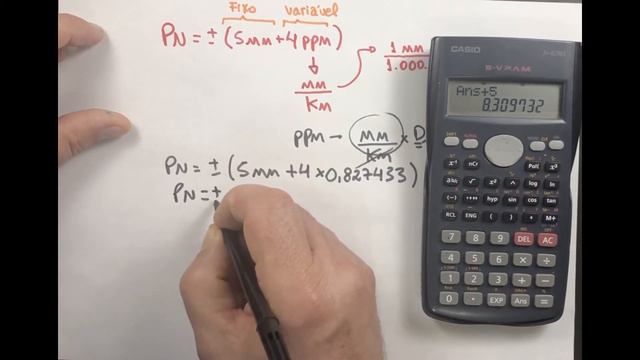 Fixo variável
PN = ± (5mm + 4 ppm)
1 mm
1.000.
mm
Km
PPM → mm × D
Km
PN = ± (5mm + 4 × 0,827433)
PN = ±
CASIO
S-V.P.A.M.
Ans+5
8.309732
SHIFT ALPHA MODE ON
x³
x² ^ log ln
(-) hyp sin cos tan
RCL ENG ( ) , M+
7 8 9 DEL AC
4 5 6 × ÷
1 2 3 + -
0 . EXP Ans =